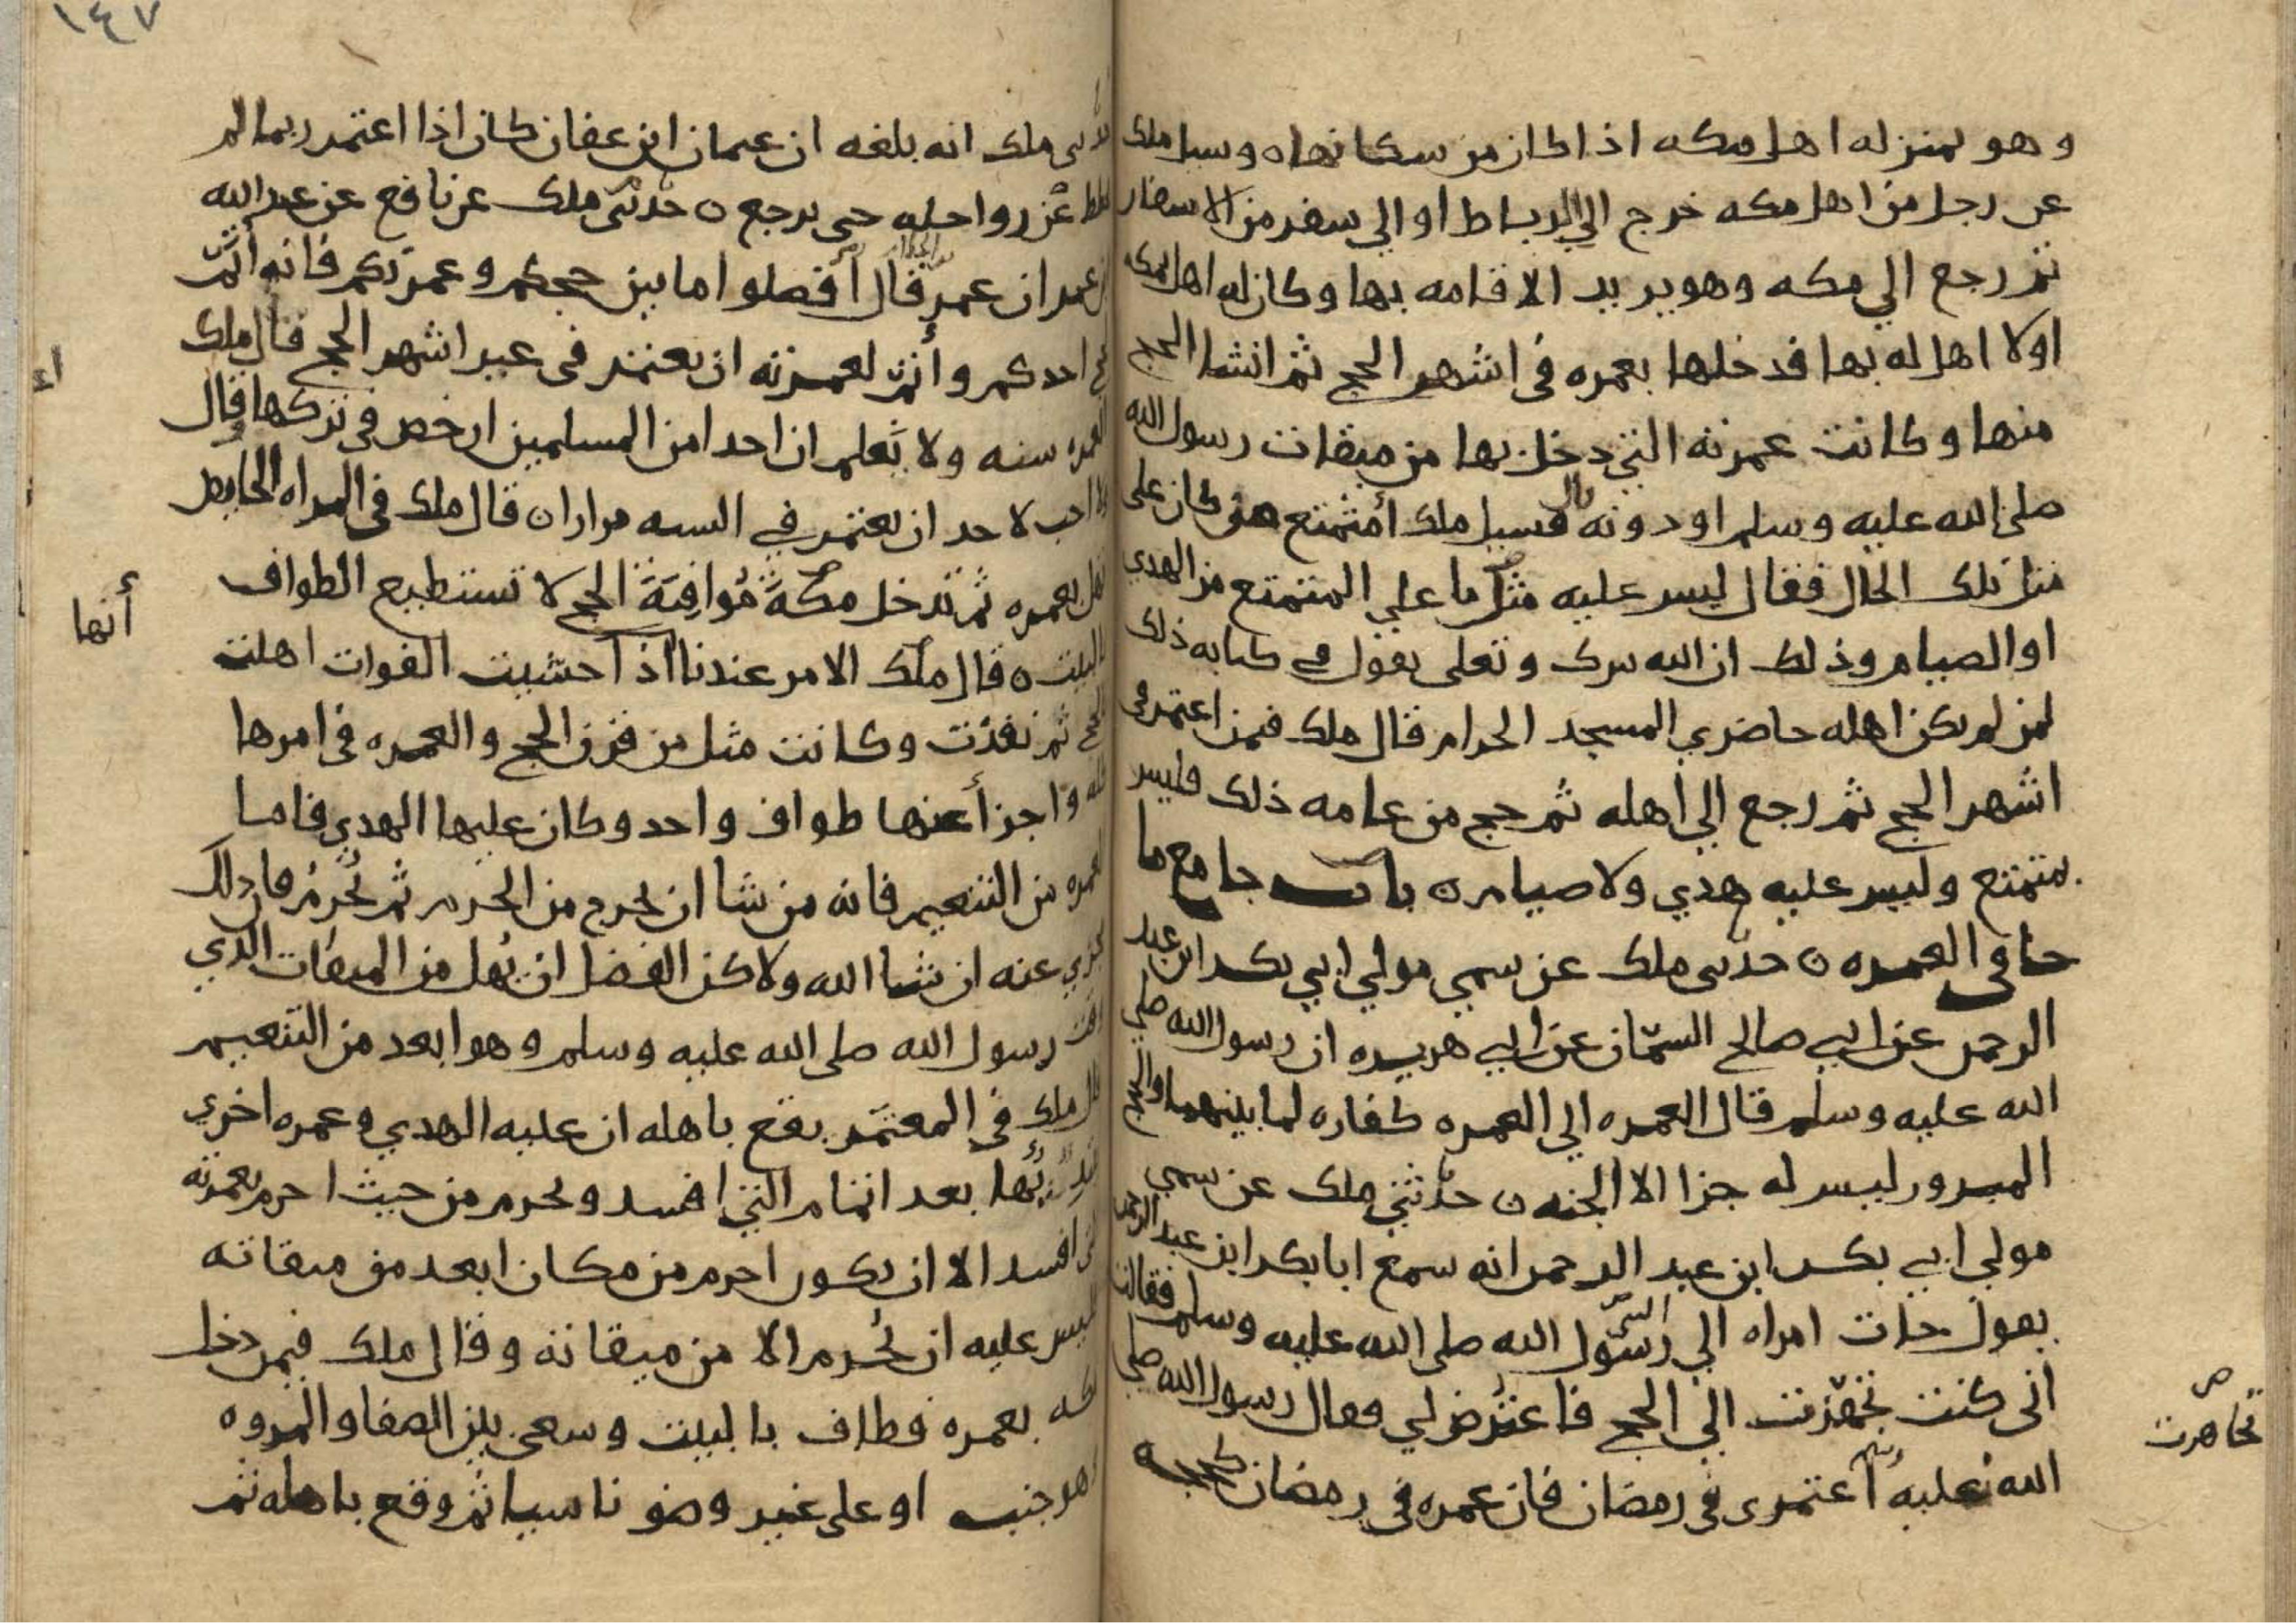 وهو بمنزله اهل مكه اذا كان من سكانها ه وسيل ملك
عن رجل من اهل مكه خرج الي الرباط او الي سفر من الاسفار
ثم رجع الي مكه وهو يريد الاقامه بها وكان له اهل بمكه
اولا اهل له بها فدخلها بعمره في اشهر الحج ثم انشا الحج
منها وكانت عمرته التي دخل بها من ميقات رسول الله
صلى الله عليه وسلم او دونه قال فسيل ملك أمتمتع هو كان على
مثل تلك الحال فقال ليس عليه مثل ما علي المتمتع من الهدي
او الصيام وذلك ان الله تبرك وتعلى يقول في كتابه ذلك
لمن لم يكن اهله حاضري المسجد الحرام قال ملك فمن اعتمر في
اشهر الحج ثم رجع الي اهله ثم حج من عامه ذلك فليس
بمتمتع وليس عليه هدي ولا صيام ن باب جامع ما
جا في العمره ن حدثني ملك عن سمي مولي ابي بكر ابن عبد
الرحمن عن ابي صالح السمّان عن ابي هريره ان رسول الله صلي
الله عليه وسلم قال العمره الي العمره كفاره لما بينهما والحج
المبرور ليس له جزا الا الجنه ن حدثني ملك عن سمي
مولي ابي بكر ابن عبد الرحمن انه سمع ابا بكر ابن عبد الرحمن
يقول جات امراه الي رسول الله صلى الله عليه وسلم فقالت
اني كنت تجهزت الي الحج فاعترض لي فقال رسول الله صلي
الله عليه وسلم اعتمري في رمضان فان عمره في رمضان كحجه
تجاهرت
١٤٧
حدثني ملك انه بلغه ان عثمان ابن عفان كان اذا اعتمر ربما لم
يحطط عن رواحله حتى يرجع ن حدثني ملك عن نافع عن عبد الله
ابن عمر ان عمر قال أفصلوا ما بين حجكم وعمرتكم فانه أتمّ
لحج احدكم وأتمّ لعمرته ان يعتمر في غير اشهر الحج قال ملك
العمره سنه ولا نعلم ان احدا من المسلمين ارخص في تركها وقال
لا احب لاحد ان يعتمر في السنه مرارا ن قال ملك في المراه الحايض
تهل بعمره ثم تدخل مكة مُوافِيَةً الحج لا تستطيع الطواف
بالبيت ه قال ملك الامر عندنا اذا خشيت الفوات اهلت
بالحج ثم نفذت وكانت مثل من قرن الحج والعمره في امرها
كله واجزأ عنها طواف واحد وكان عليها الهدي فاما
العمره من التنعيم فانه من شا ان يخرج من الحرم ثم يُحرمُ فان ذلك
يجزي عنه ان شا الله ولاكن الفضل ان يُهل من الميقات الذي
وقت رسول الله صلى الله عليه وسلم وهو ابعد من التنعيم
قال ملك في المعتمر يقع باهله ان عليه الهدي وعمره اخري
يبتدئها بعد اتمام التي افسد ويحرم من حيث احرم بعمرته
التي افسد الا ان يكون احرم من مكان ابعد من ميقاته
فليس عليه ان يُحرم الا من ميقاته وقال ملك فيمن دخل
مكه بعمره فطاف بالبيت وسعى بين الصفا والمروه
وهو جنب او على غير وضو ناسيا ثم وقع باهله ثم
أنها